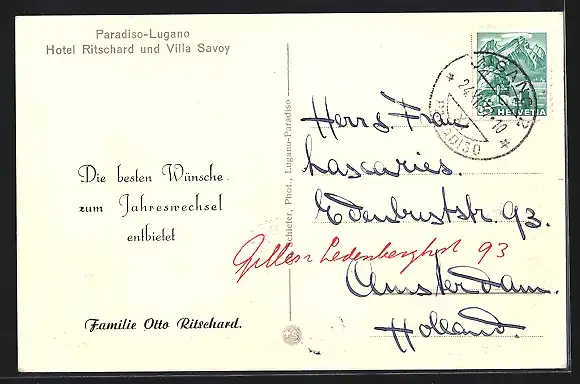 Paradiso-Lugano
Hotel Ritschard und Villa Savoy
Die besten Wünsche
zum Jahreswechsel
entbietet
Familie Otto Ritschard.
Schleter, Phot., Lugano-Paradiso
LUGANO 2
PARADISO
HELVETIA
Herrs. Frau
Lascaries.
93.
93
Amsterdam.
Holland.